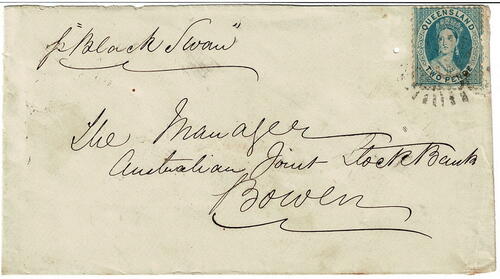 p "Black Swan"
QUEENSLAND
TWO PENCE
The Manager
Australian Joint Stock Bank
Bowen